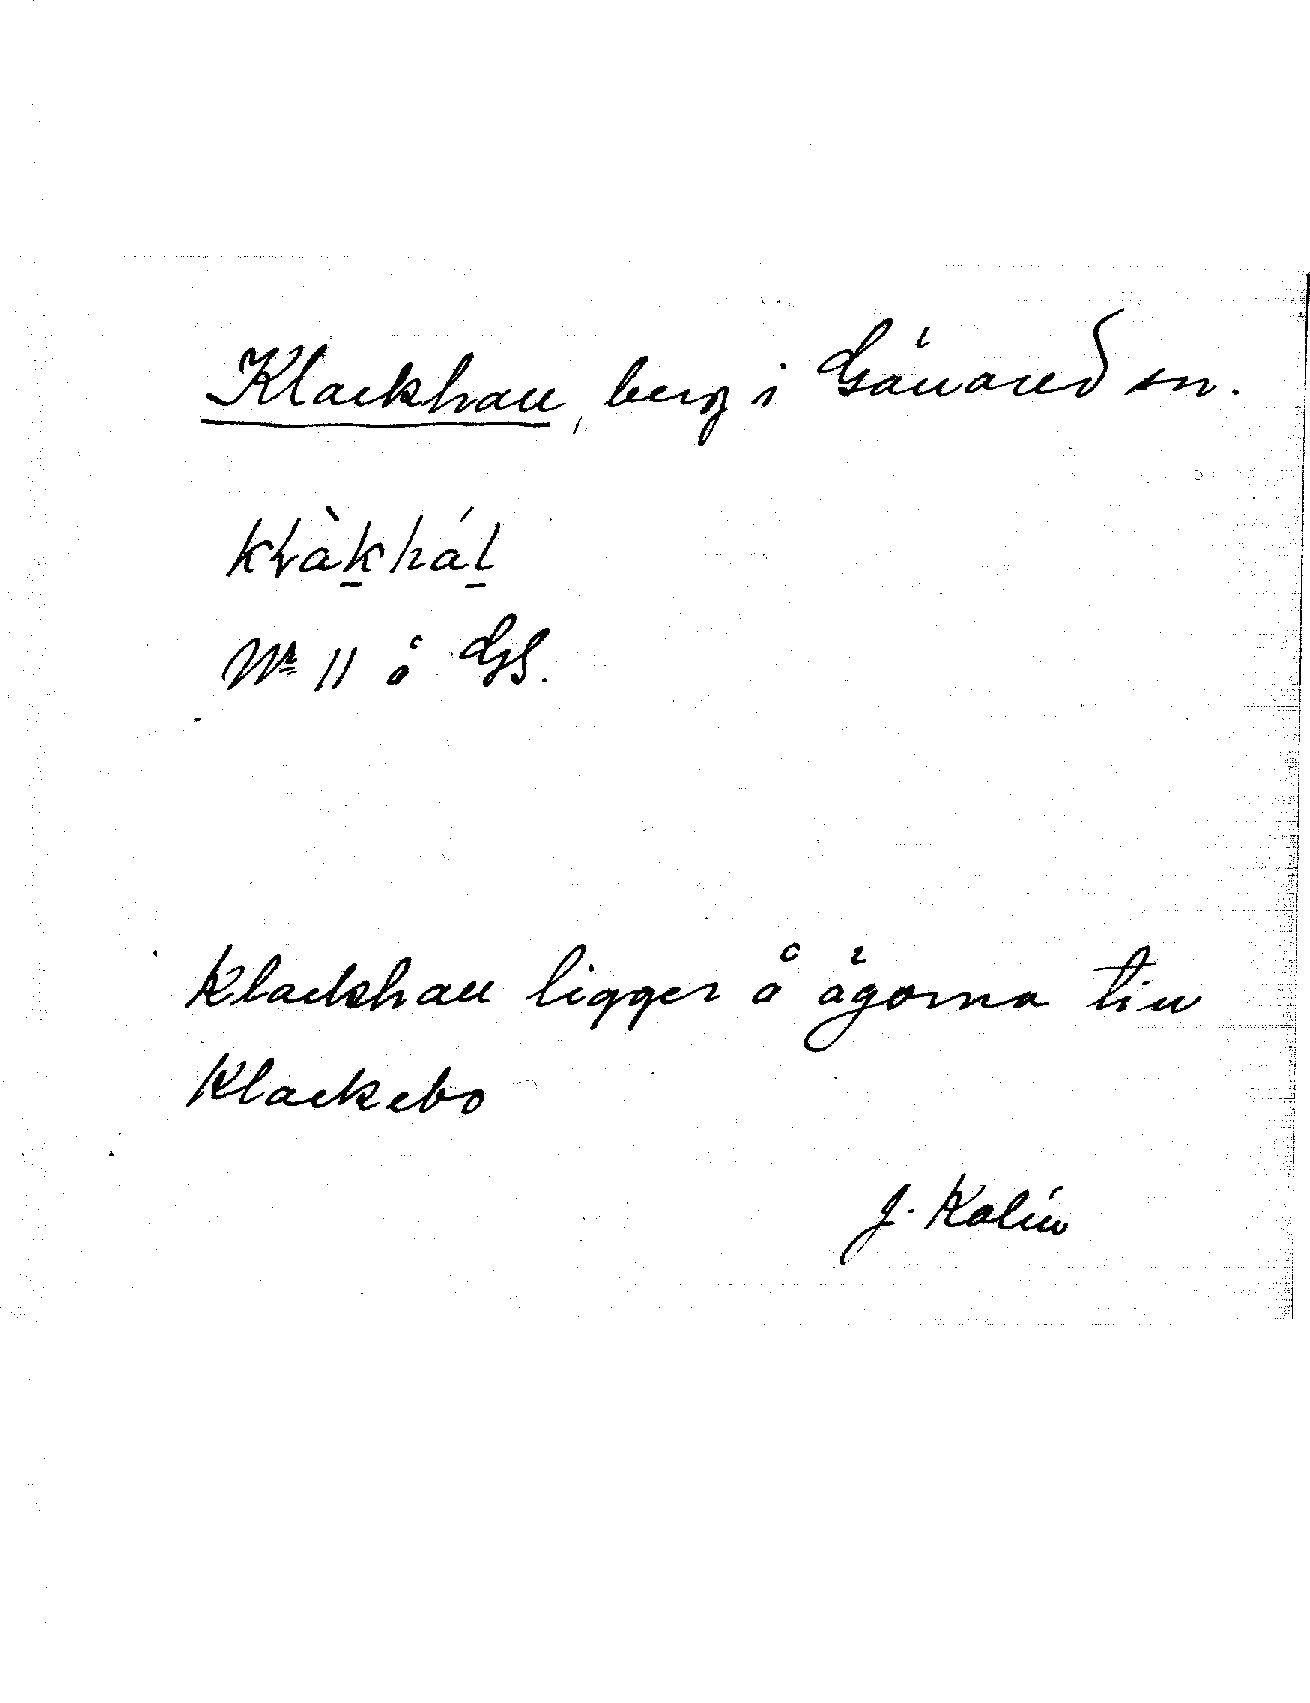 Klackhall, berg i Gällared sn.
klàkhál
Nr 11 å GS.
Klackhall ligger å ägorna till
Klackebo
J. Kalén